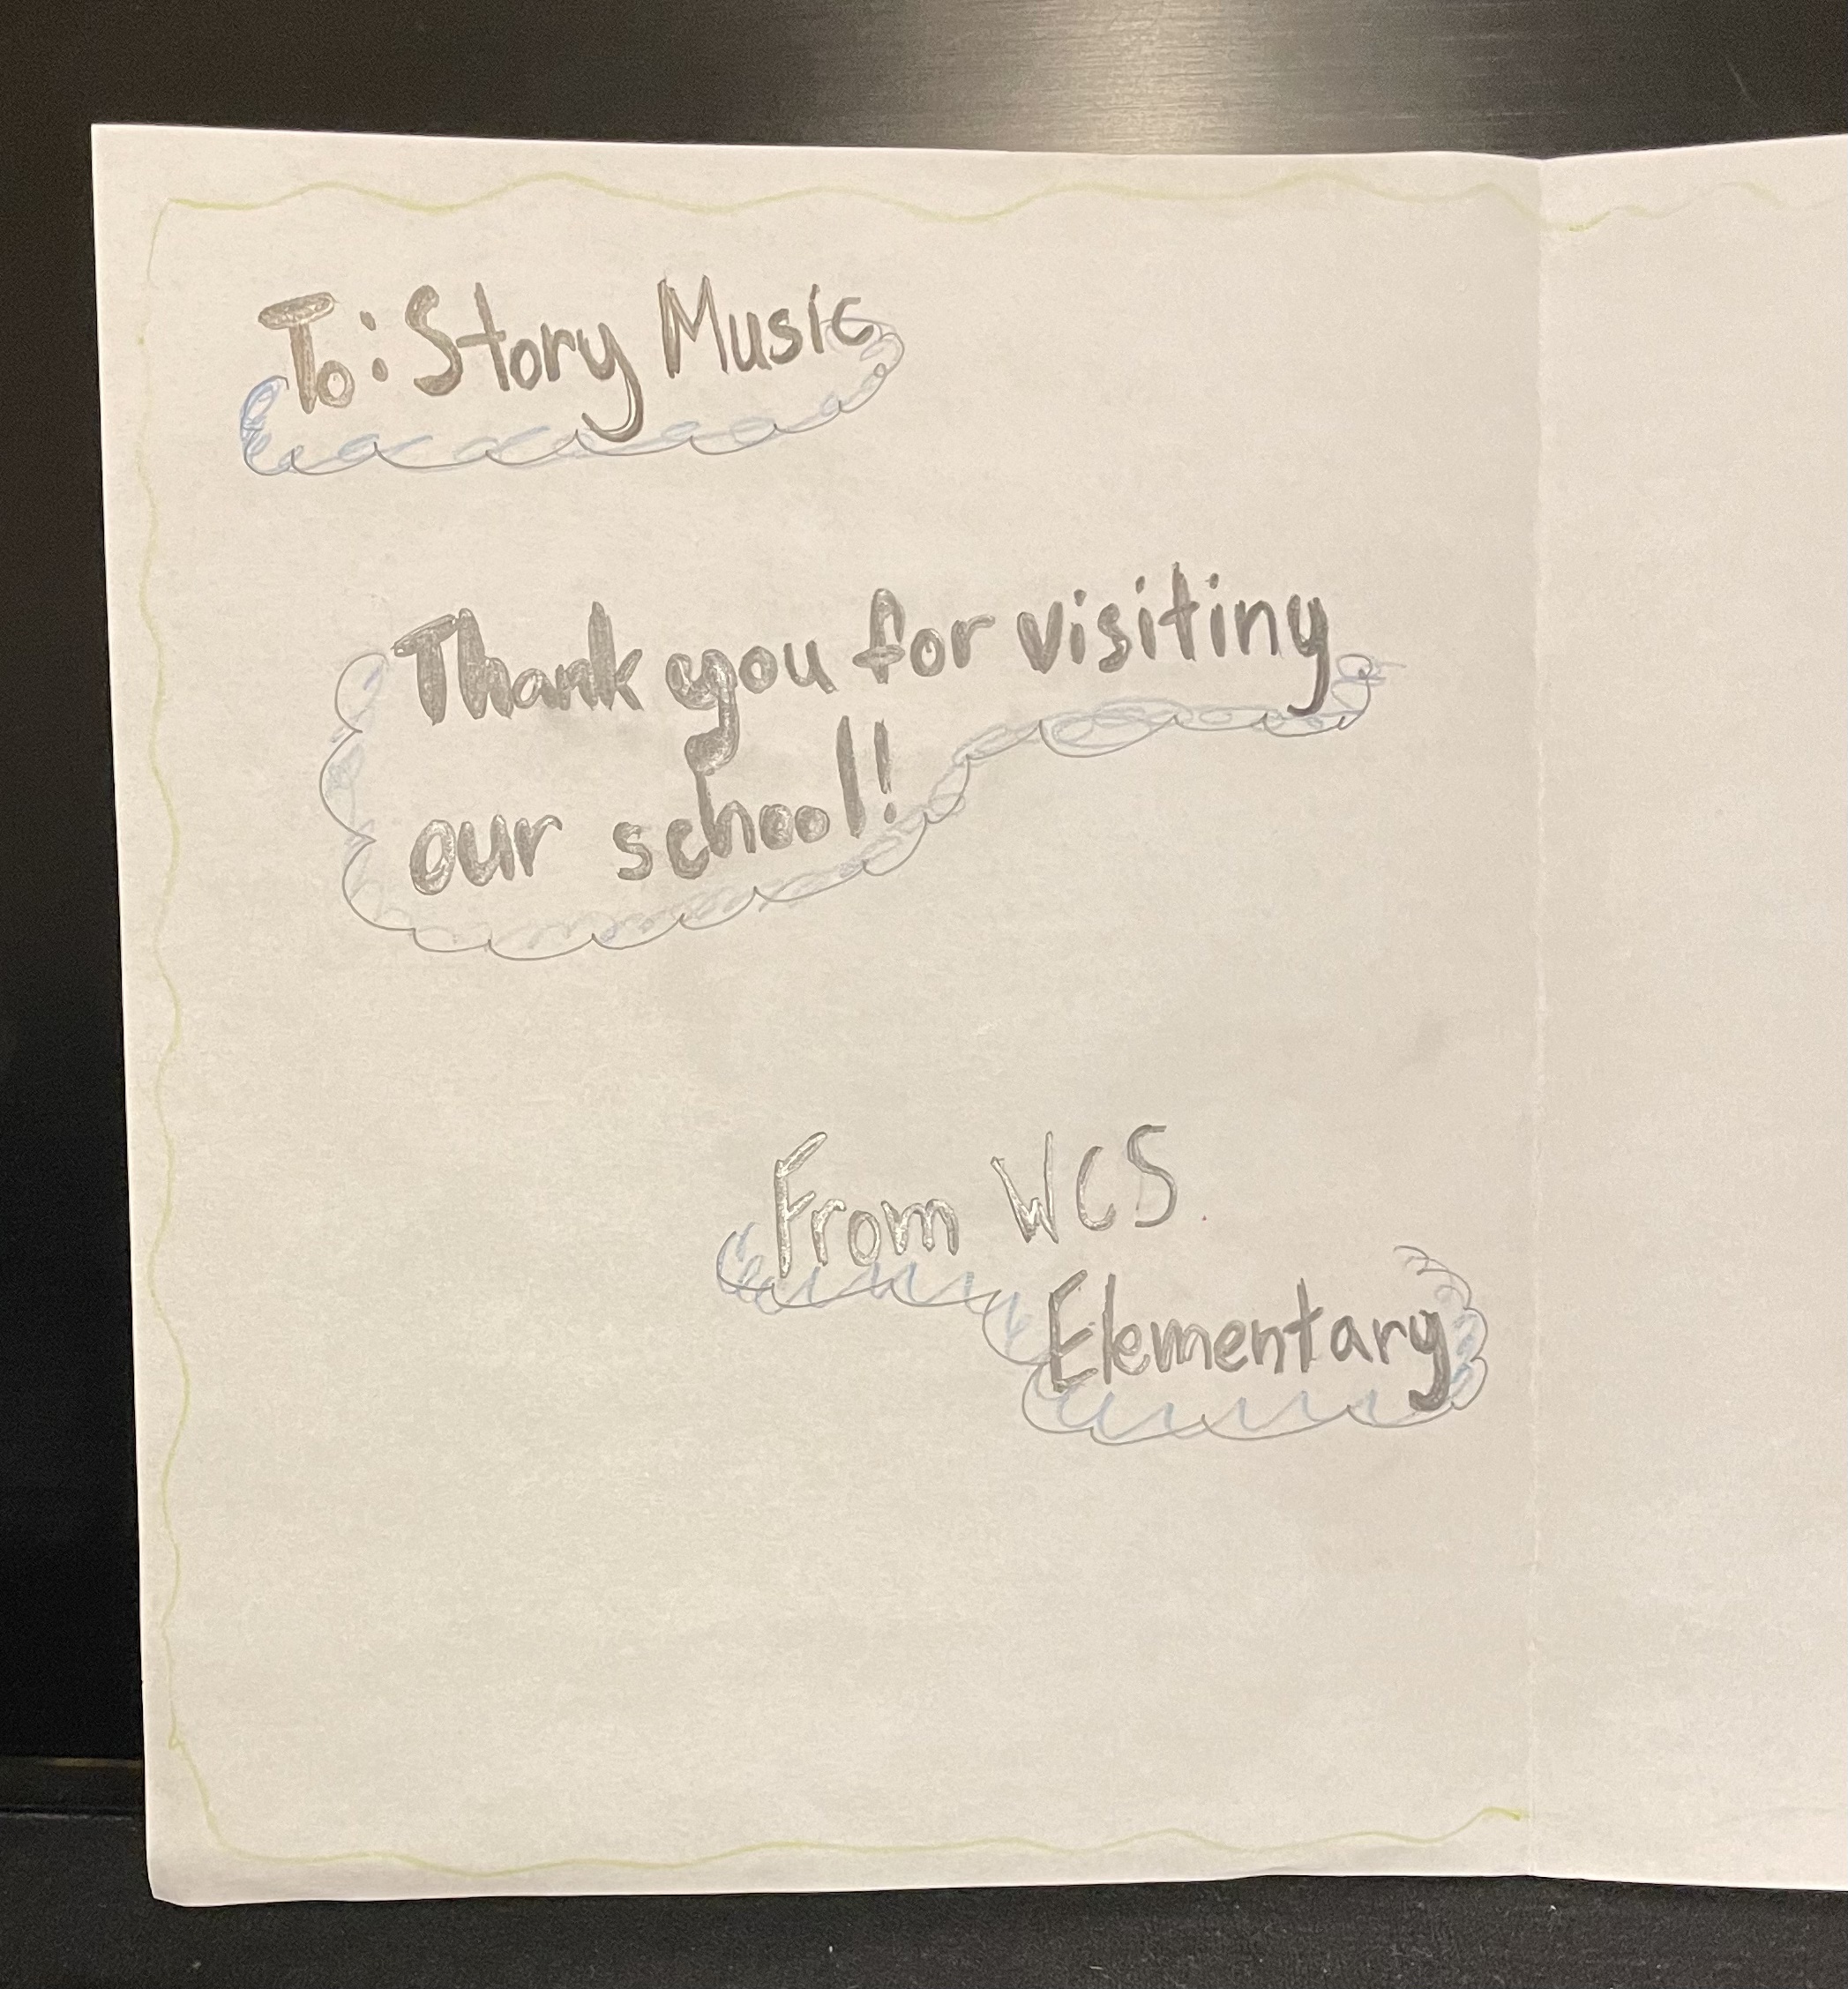 To: Story Music
Thank you for visiting
our school!
From WCS
Elementary